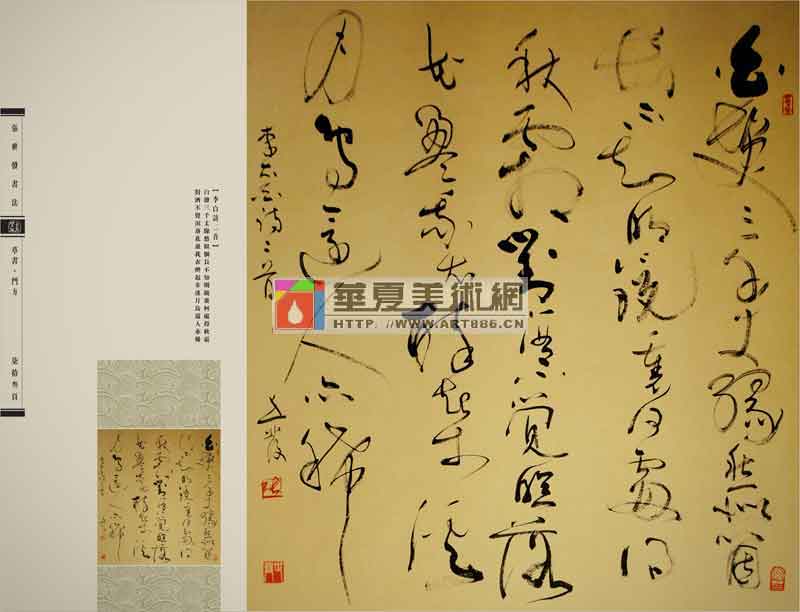 白髮三千丈緣愁似箇
長不知明鏡裏何處得
秋霜對酒不覺暝落
花盈我衣醉起步溪
月鳥還人亦稀
李太白詩二首
【李白詩二首】
白髮三千丈緣愁似個長不知明鏡裏何處得秋霜
對酒不覺暝落花盈我衣醉起步溪月鳥還人亦稀
書法
草書·鬥方
柒拾叁頁
華夏美術網
HTTP://WWW.ART886.CN